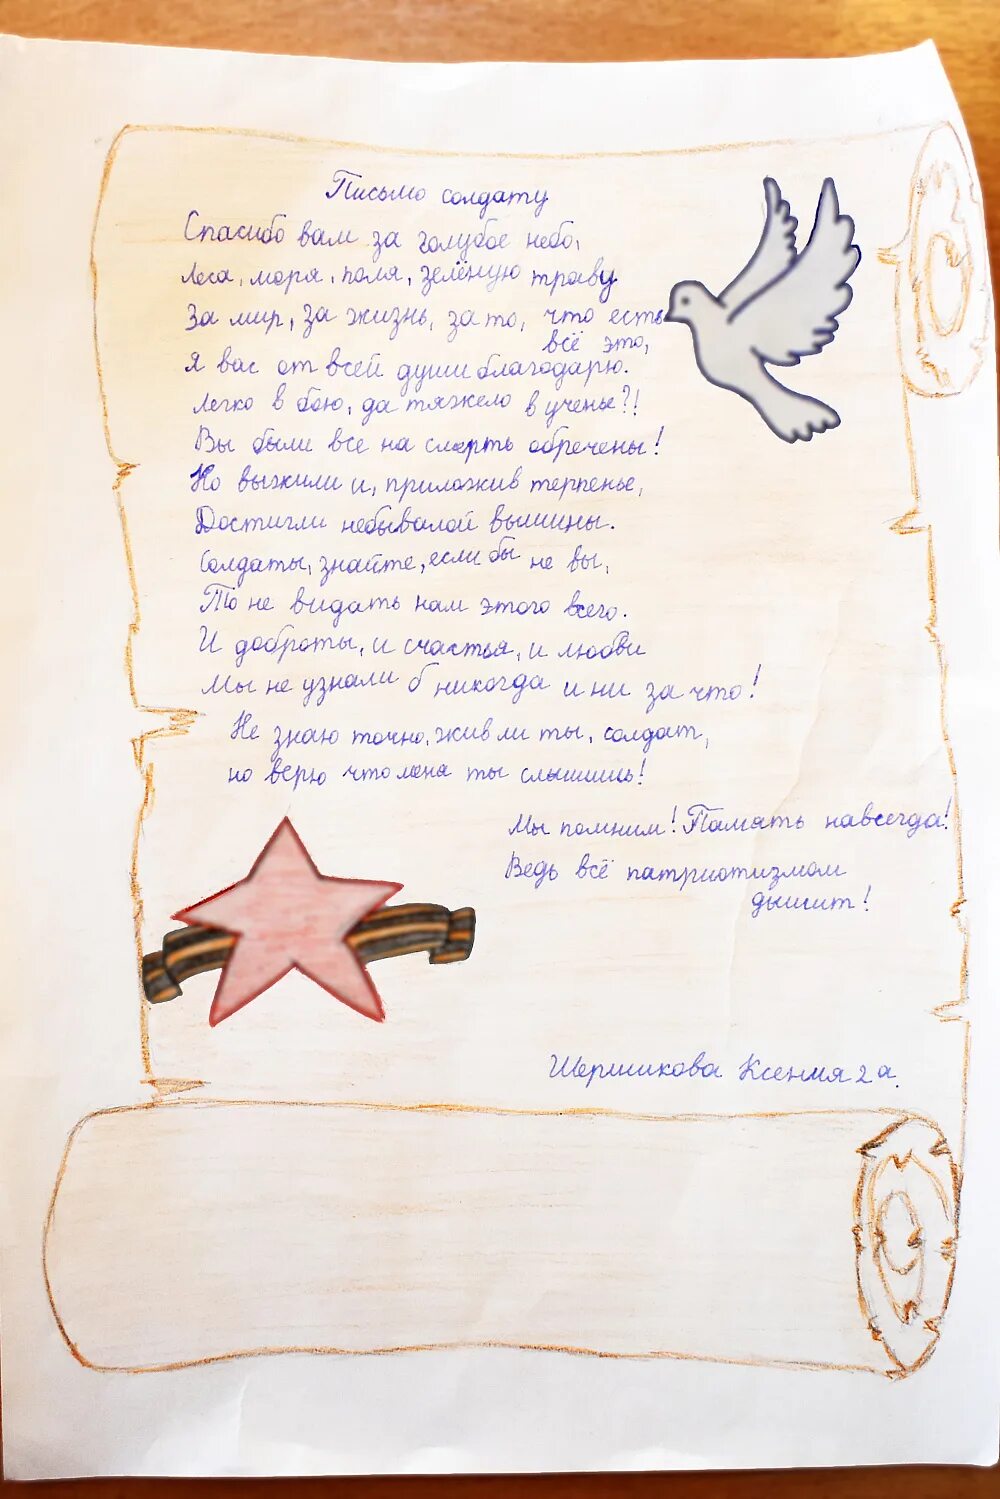 Письмо солдату
Спасибо вам за голубое небо,
Леса, моря, поля, зелёную траву
За мир, за жизнь, за то, что есть
всё это,
Я вас от всей души благодарю.
Легко в бою, да тяжело в ученье?!
Вы были все на смерть обречены!
Но выжили и, приложив терпенье,
Достигли небывалой вышины.
Солдаты, знайте, если бы не вы,
То не видать нам этого всего.
И доброты, и счастья, и любви
Мы не узнали б никогда и ни за что!
Не знаю точно, жив ли ты, солдат,
но верю что меня ты слышишь!
Мы помним! Память навсегда!
Ведь всё патриотизмом
дышит!
Шершикова Ксения 2 а.